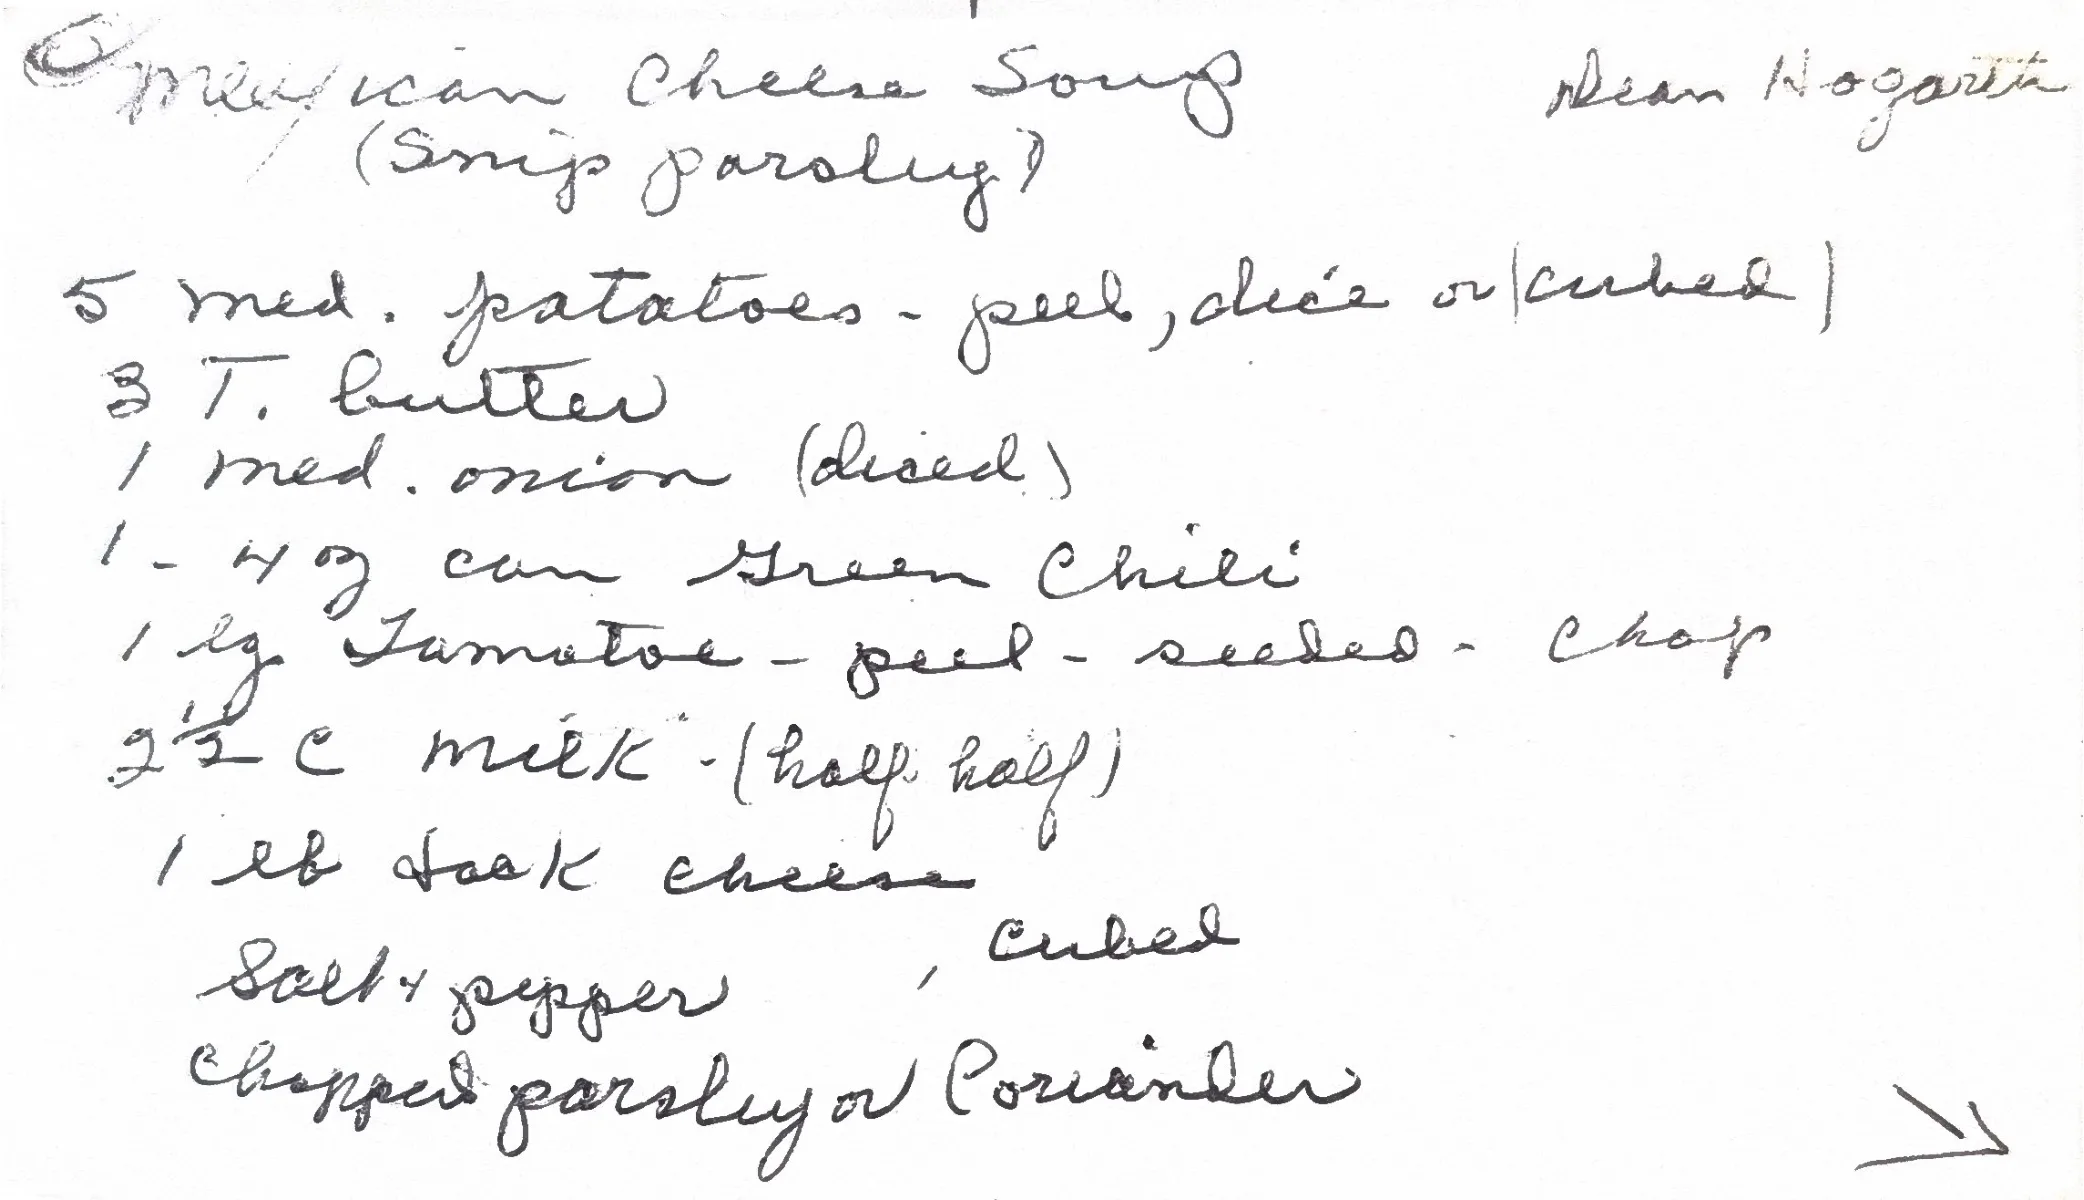 Mexican Cheese Soup Dean Hogarth
(Snip parsley)
5 med. patatoes - peel, dice or (cubed)
3 T. butter
1 med. onion (diced)
1 - 4 oz can Green Chili
1 lg Tamatoe - peel - seeded - chop
2 1/2 C Milk - (half half)
1 lb Jack cheese
, cubed
Salt & pepper
Chopped parsley or Coriander